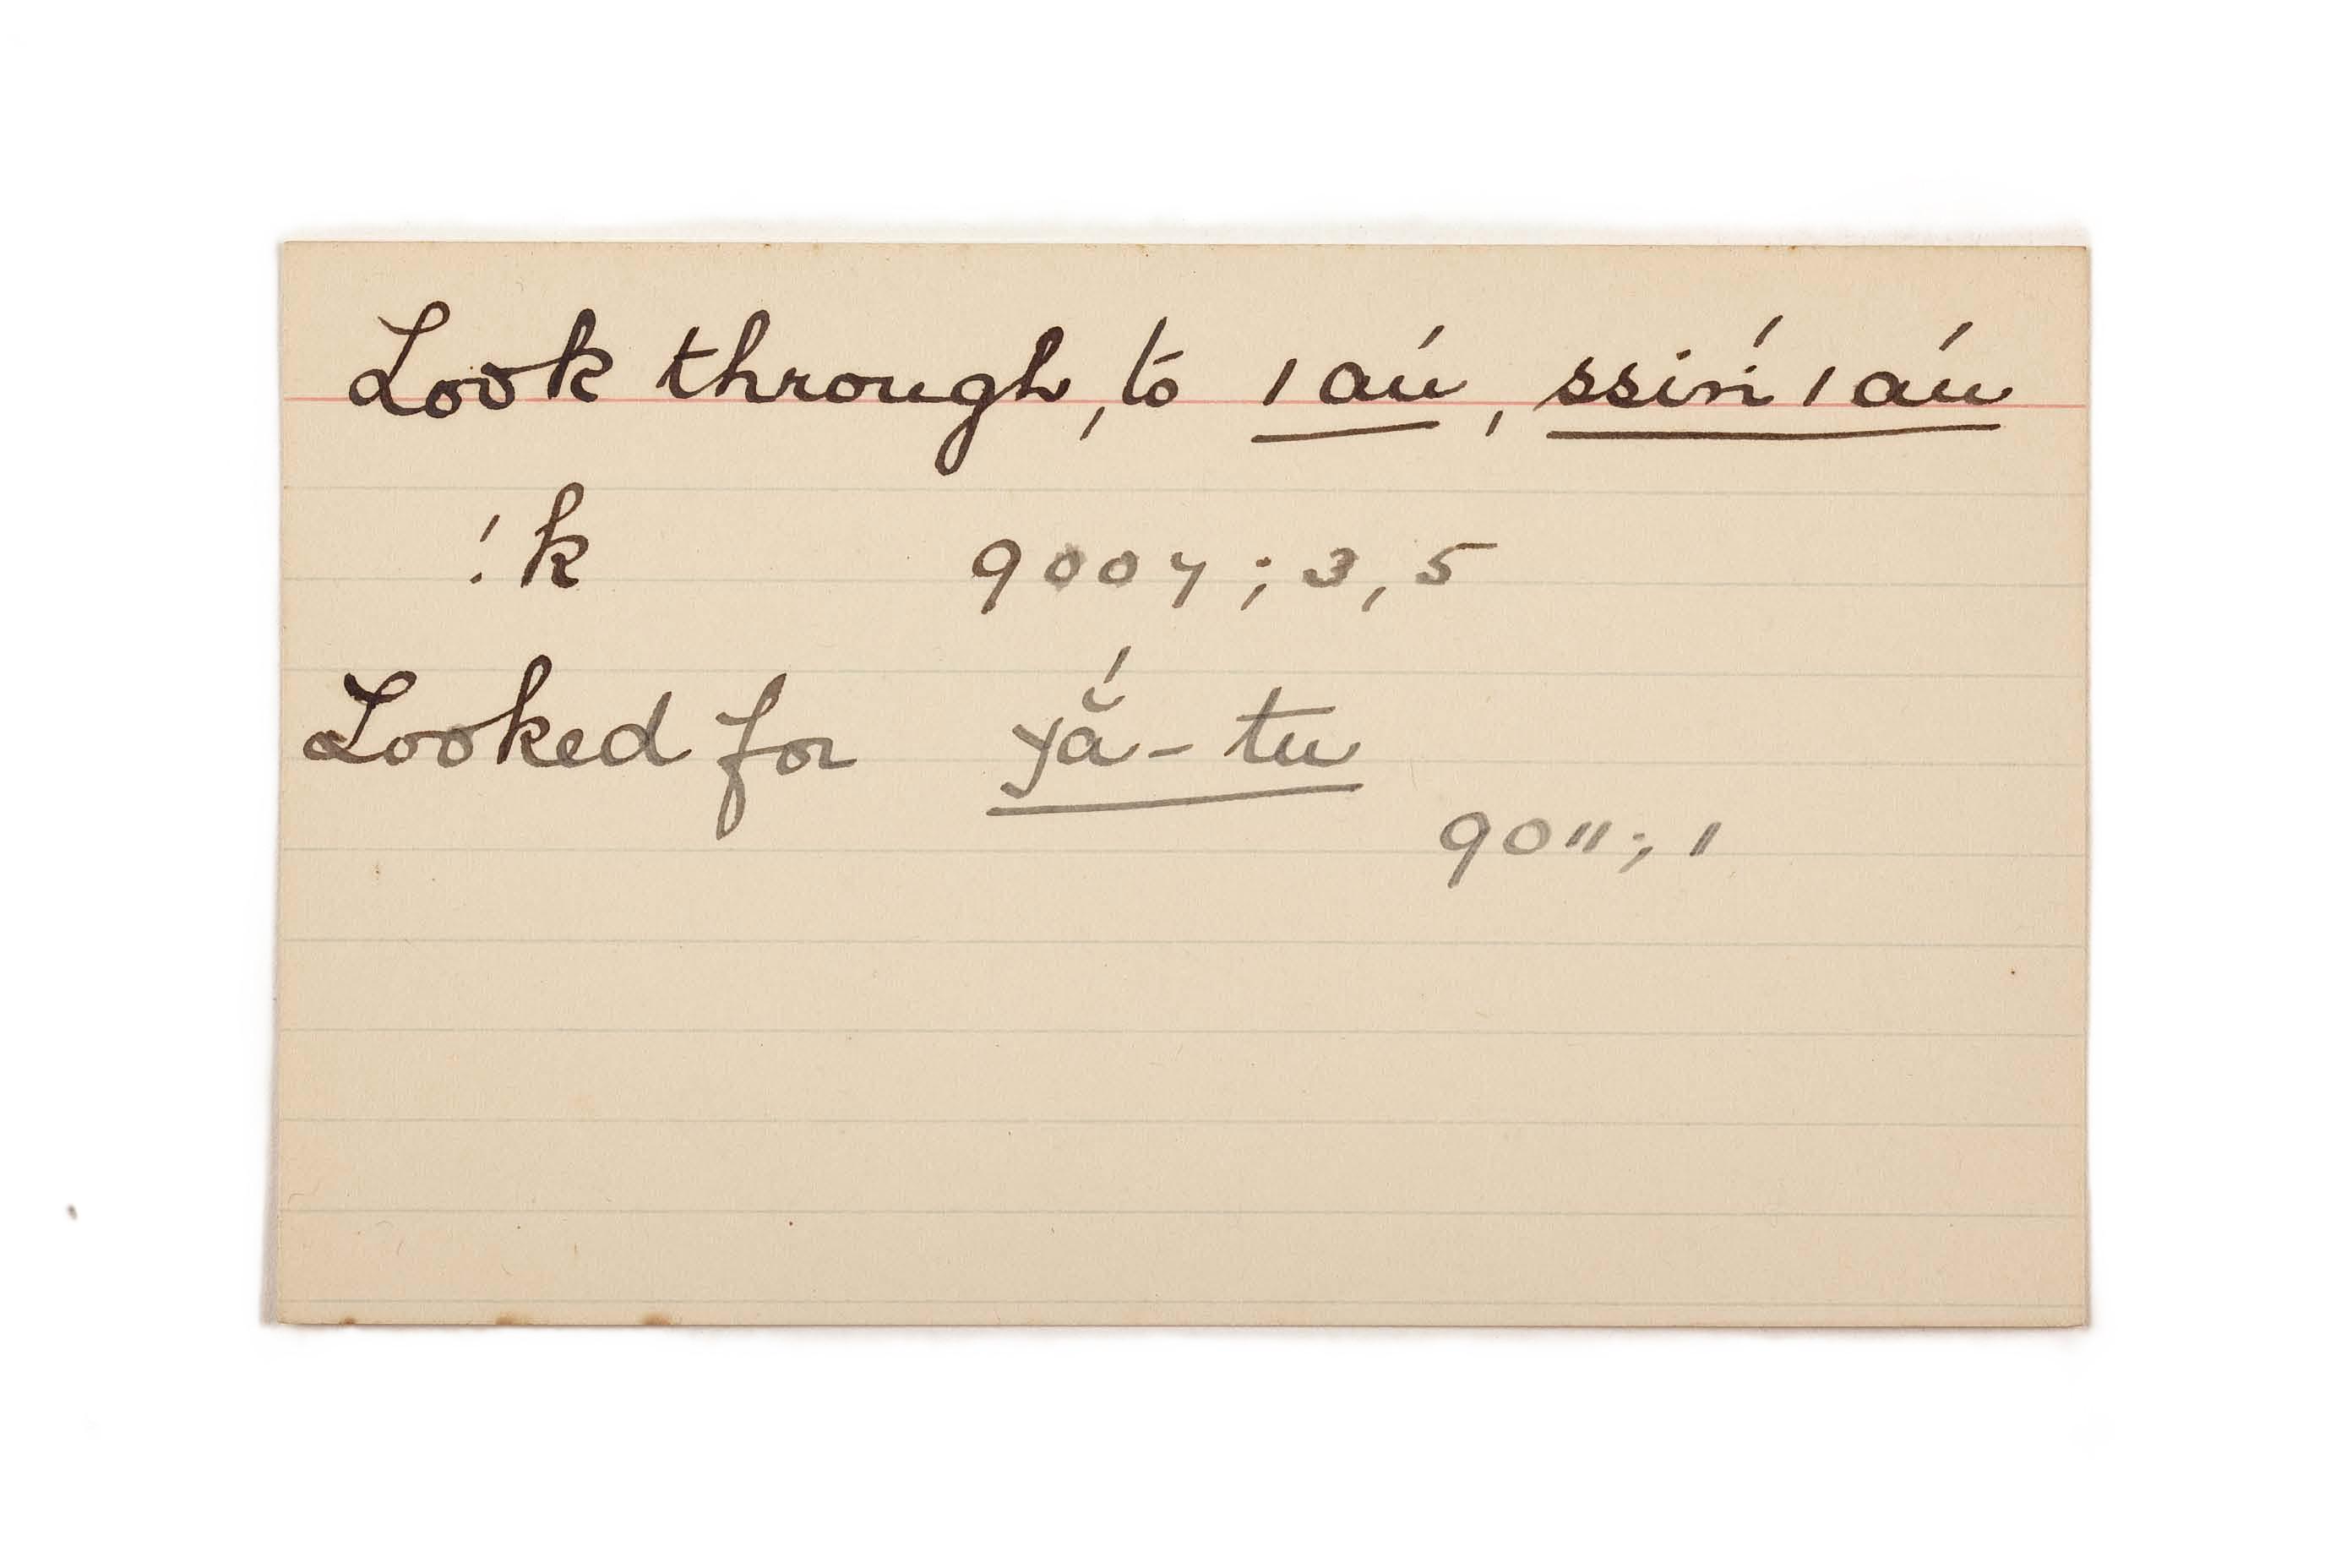 Look through, to ǀ aú, ssiṅ́ ǀ áu
!k 9007; 3, 5
Looked for yắ-tu
9011; 1